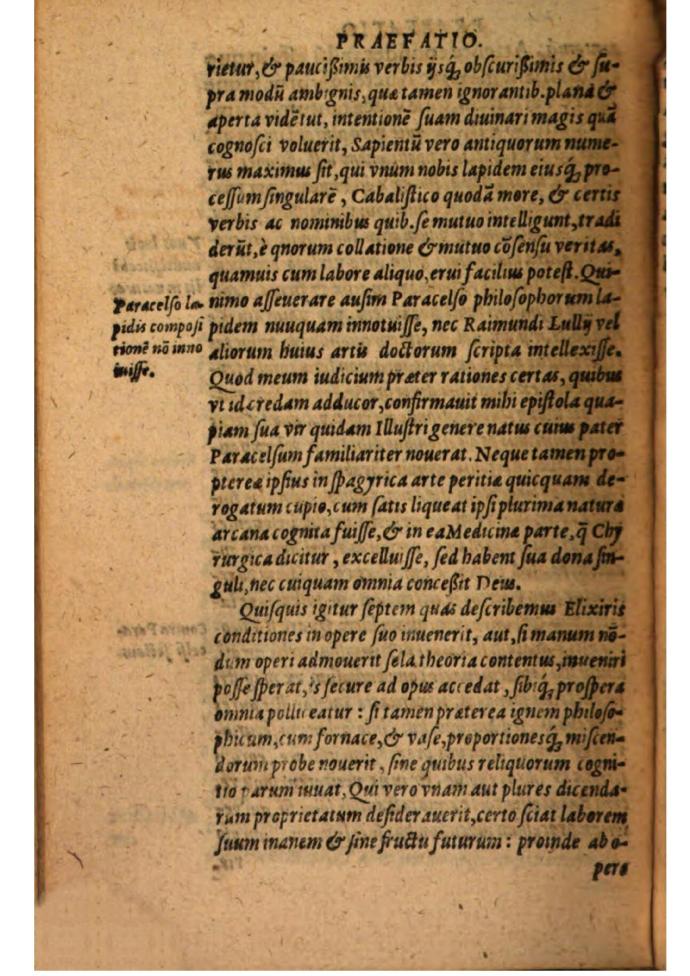 PRAEFATIO.
rietur, & paucißimis verbis ijsq́, obſcurißimis & ſu-
pra modū ambignis, quæ tamen ignorantib. planā &
aperta vidētut, intentionē ſuam diuinari magis quā
cognoſci voluerit, Sapientū vero antiquorum nume-
rus maximus ſit, qui vnum nobis lapidem eiusq́, pro-
ceſſum ſingularē, Cabaliſtico quodā more, & certis
verbis ac nominibus quib. ſe mutuo intelligunt, tradi
derūt, è qnorum collatione & mutuo cōſenſu veritas,
quamuis cum labore aliquo, erui facilius poteſt. Qui-
nimo aſſeuerare auſim Paracelſo philoſophorum la-
pidem nuuquam innotuiſſe, nec Raimundi Lullij vel
aliorum huius artis doctorum ſcripta intellexiſſe.
Quod meum iudicium præter rationes certas, quibus
vt id credam adducor, confirmauit mihi epiſtola qua-
piam ſua vir quidam Illuſtri genere natus cuius pater
Paracelſum familiariter nouerat. Neque tamen pro-
pterea ipſius in ſpagyrica arte peritia quicquam de-
rogatum cupio, cum ſatis liqueat ipſi plurima natura
arcana cognita fuiſſe, & in ea Medicinæ parte, q̄ Chy
rurgica dicitur, excelluiſſe, ſed habent ſua dona ſin-
guli, nec cuiquam omnia conceßit Deus.
Quiſquis igitur ſeptem quas deſcribemus Elixiris
conditiones in opere ſuo inuenerit, aut, ſi manum nō-
dum operi admouerit ſela theoria contentus, inueniri
poſſe ſperat, is ſecure ad opus accedat, ſibiq́, proſpera
omnia polliceatur: ſi tamen præterea ignem philoſo-
phicum, cum fornace, & vaſe, proportionesq́, miſcen-
dorum probe nouerit, ſine quibus reliquorum cogni-
tio parum iuuat. Qui vero vnam aut plures dicenda-
rum proprietatum deſiderauerit, certo ſciat laborem
ſuum inanem & ſine fructu futurum: proinde ab o-
pere
Paracelſo la-
pidis compoſi
tionē nō inno
tuiſſe.